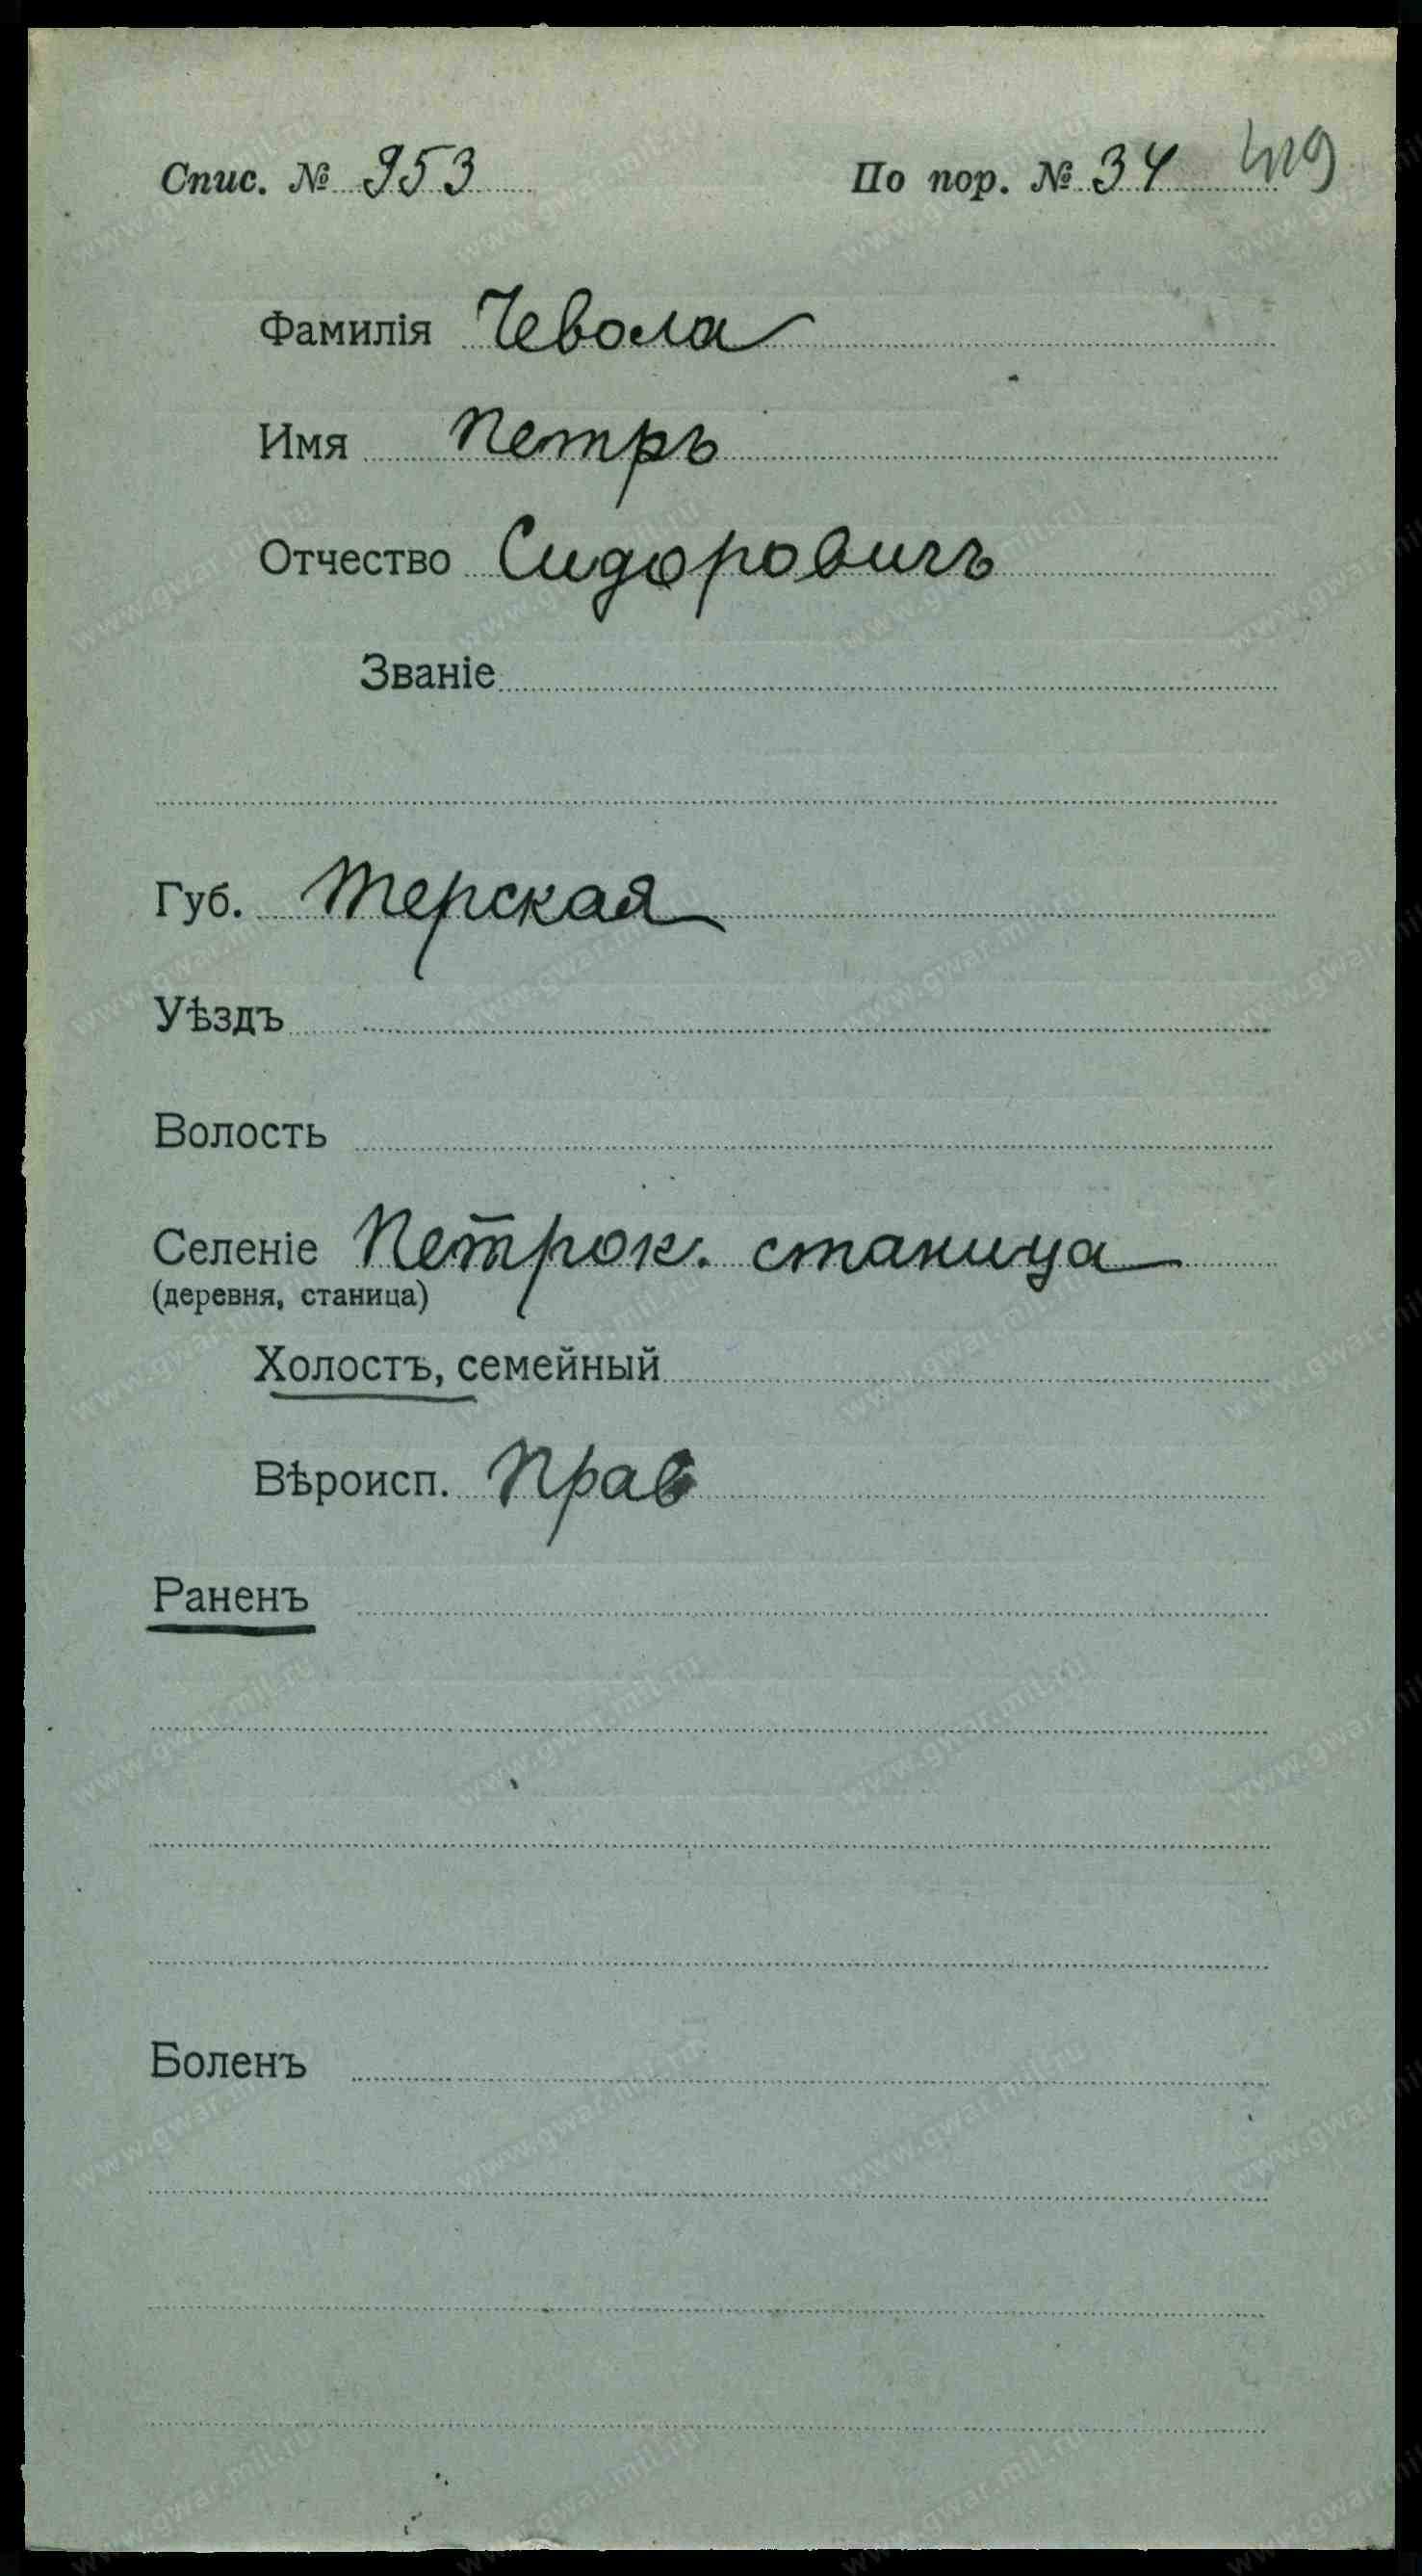 Спис. № 953 По пор. № 34
Фамилія Чевола
Имя Петръ
Отчество Сидоровичъ
Званіе
Губ. Терская
Уѣздъ
Волость
Селеніе Петрок. станица
(деревня, станица)
Холостъ, семейный
Вѣроисп. Прав
Раненъ
Боленъ